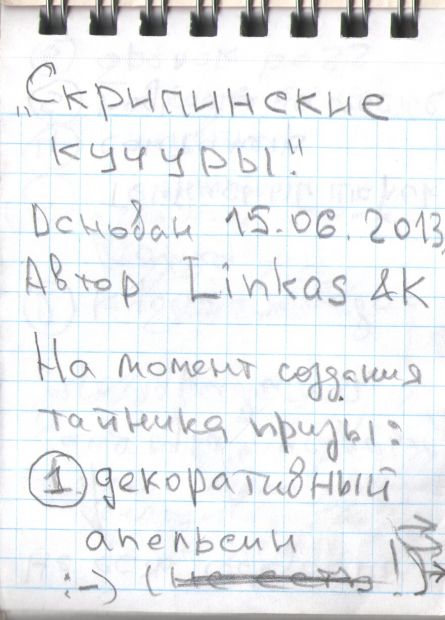 „Скрипинские
кучуры!"
Основан 15.06.2013
Автор Linkas &K
На момент создания
тайника призы:
1 декоративный
апельсин
:-) (не есть!)